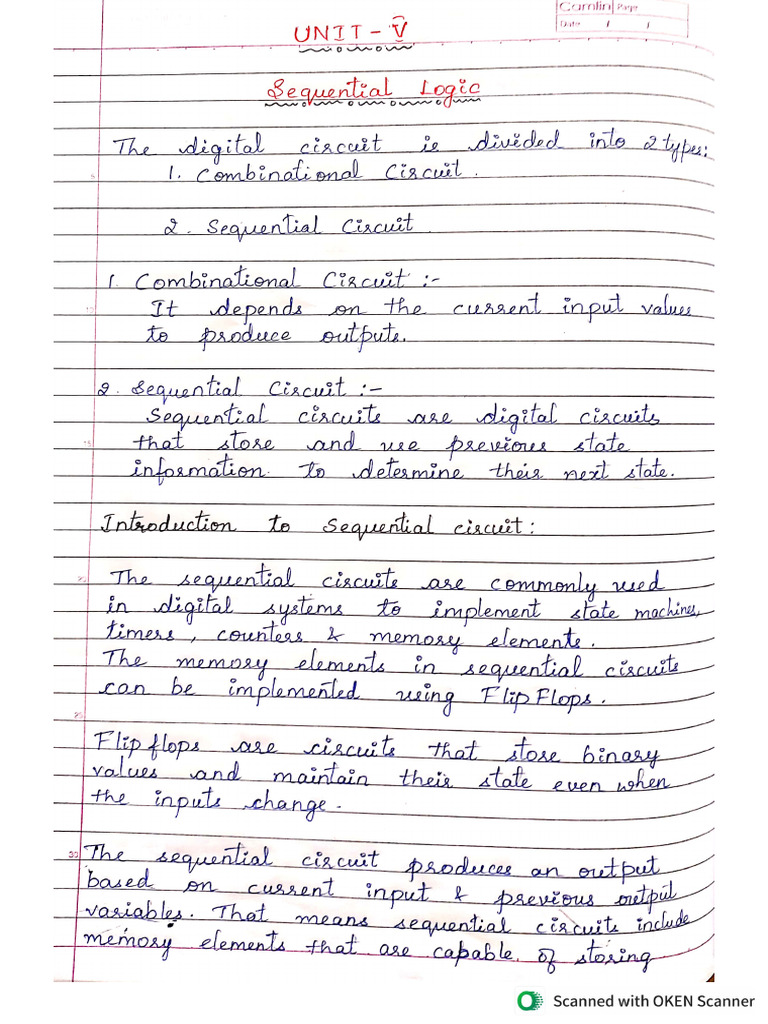 Camlin Page
Date / /
UNIT - V
Sequential Logic
The digital circuit is divided into 2 types:
1. Combinational Circuit.
2. Sequential Circuit
1. Combinational Circuit :-
It depends on the current input values
to produce outputs.
2. Sequential Circuit :-
Sequential circuits are digital circuits
that store and use previous state
information to determine their next state.
Introduction to Sequential circuit :
The sequential circuits are commonly used
in digital systems to implement state machines,
timers, counters & memory elements.
The memory elements in sequential circuits
can be implemented using Flip Flops.
Flip flops are circuits that store binary
values and maintain their state even when
the inputs change.
The sequential circuit produces an output
based on current input & previous output
variables. That means sequential circuits include
memory elements that are capable of storing
Scanned with OKEN Scanner